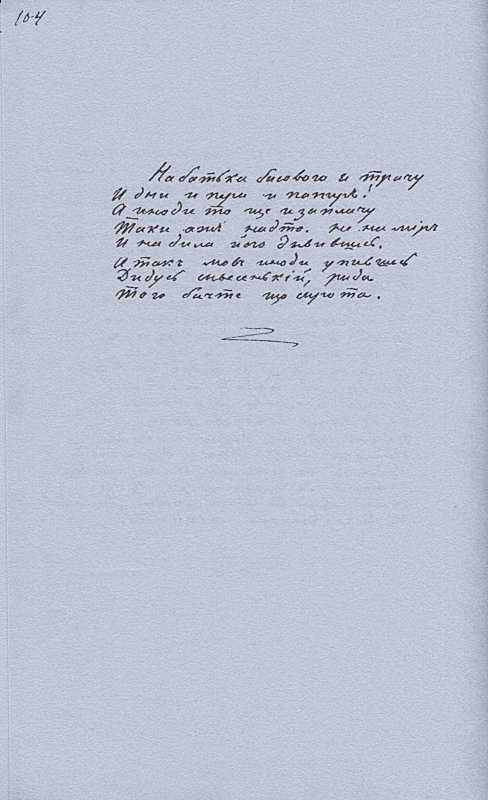 104
На батька бисового и трачу
И дни и пера и папир!
А иноди то ще и заплачу
Таки аж надто. не на міръ
И на дила його дывившись.
А такъ мовъ иноди упившись
Дидусь сивесенькій, рида
Того бачте що сырота.